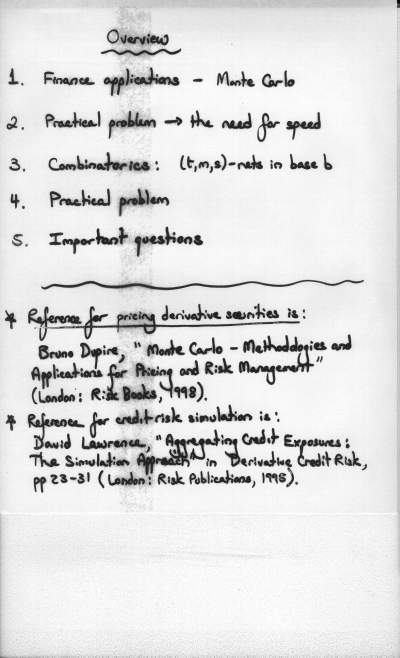 Overview
1. Finance applications - Monte Carlo
2. Practical problem → the need for speed
3. Combinatorics: (t,m,s)-nets in base b
4. Practical problem
5. Important questions
* Reference for pricing derivative securities is:
Bruno Dupire, "Monte Carlo - Methodologies and
Applications for Pricing and Risk Management"
(London: Risk Books, 1998).
* Reference for credit risk simulation is:
David Lawrence, "Aggregating Credit Exposures:
The Simulation Approach" in Derivative Credit Risk,
pp 23-31 (London: Risk Publications, 1995).